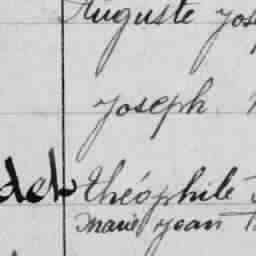 Auguste Jos
Joseph
Théophile
Marie Jean